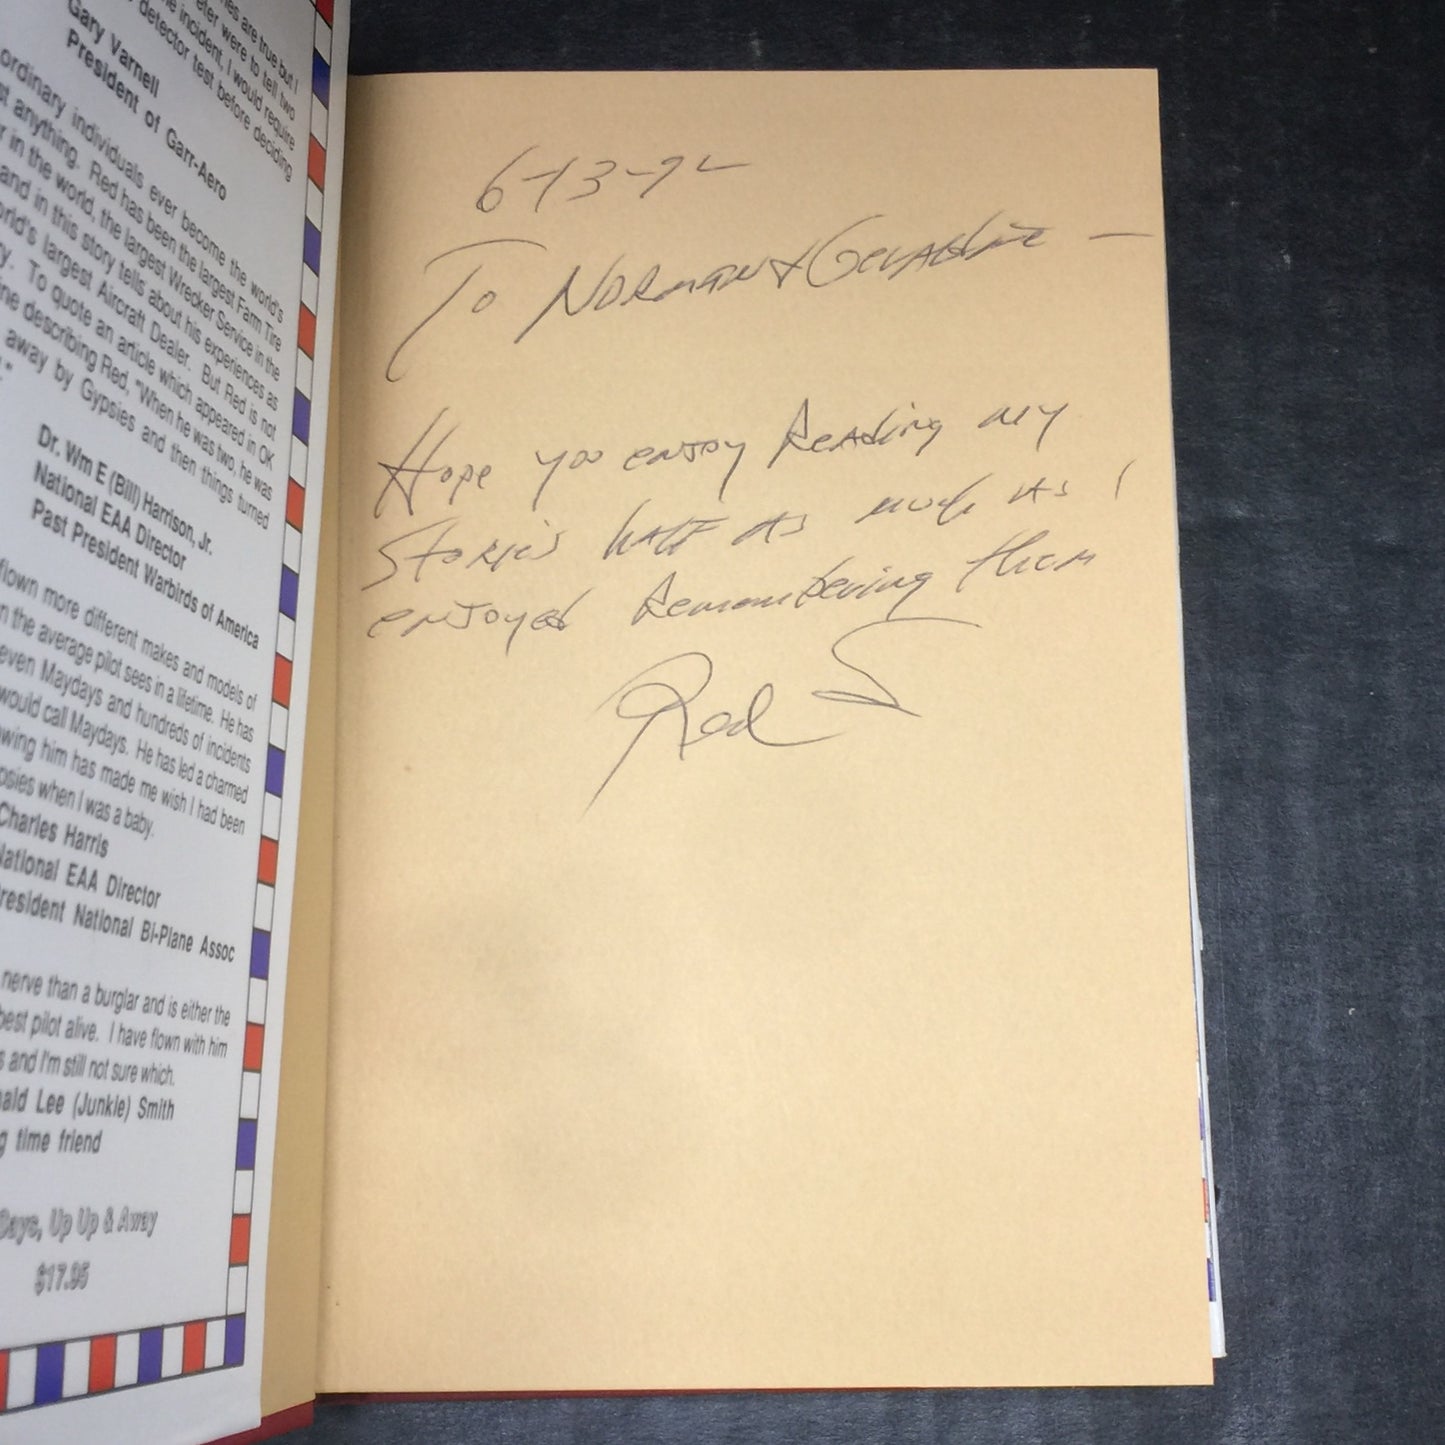 ies are true but I
eter were to tell two
e incident, I would require
detector test before deciding
Gary Varnell
President of Garr-Aero
ordinary individuals ever become the world's
st anything. Red has been the largest Farm Tire
r in the world, the largest Wrecker Service in the
and in this story tells about his experiences as
orld's largest Aircraft Dealer. But Red is not
ry. To quote an article which appeared in OK
ine describing Red, "When he was two, he was
away by Gypsies and then things turned
."
Dr. Wm E (Bill) Harrison, Jr.
National EAA Director
Past President Warbirds of America
flown more different makes and models of
n the average pilot sees in a lifetime. He has
even Maydays and hundreds of incidents
would call Maydays. He has led a charmed
wing him has made me wish I had been
psies when I was a baby.
Charles Harris
National EAA Director
President National Bi-Plane Assoc
nerve than a burglar and is either the
best pilot alive. I have flown with him
s and I'm still not sure which.
nald Lee (Junkie) Smith
g time friend
Days, Up Up & Away
$17.95
6-13-92
To Norman & Geraldine —
Hope you enjoy Reading my
Stories half as much as I
enjoyed Remembering them
Red S